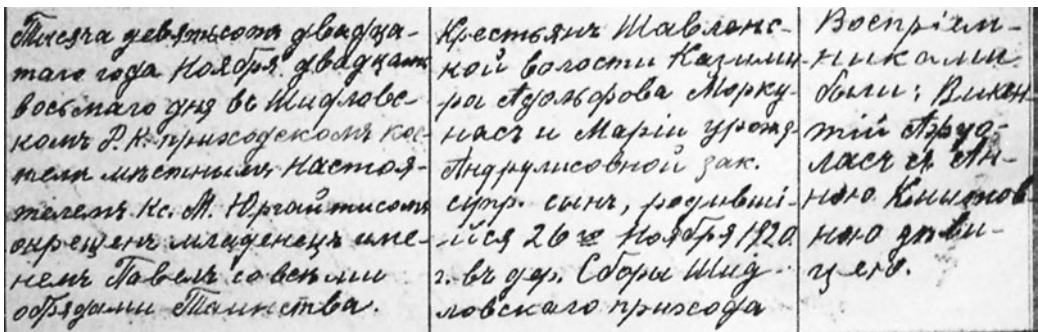 Тысяча девятьсотъ двадца-
таго года Ноября двадцать
восьмаго дня въ Шидловс-
комъ Р. К. приходскомъ кос-
телѣ мѣстнымъ Настоя-
телемъ Кс. М. Юргайтисомъ
окрещенъ младенецъ име-
немъ Павелъ со всѣми
обрядами Таинства.
Крестьянъ Шавланс-
кой волости Казими-
ра Адольфова Морку-
насъ и Маріи урожд.
Андрулисовной зак.
супр. сынъ, родивші-
йся 26го Ноября 1920
г. въ дер. Сборы Шид-
ловскаго прихода
Воспріем-
никами
были: Викен-
тій
ласъ съ Ан-
ною
ною дѣви-
цею.